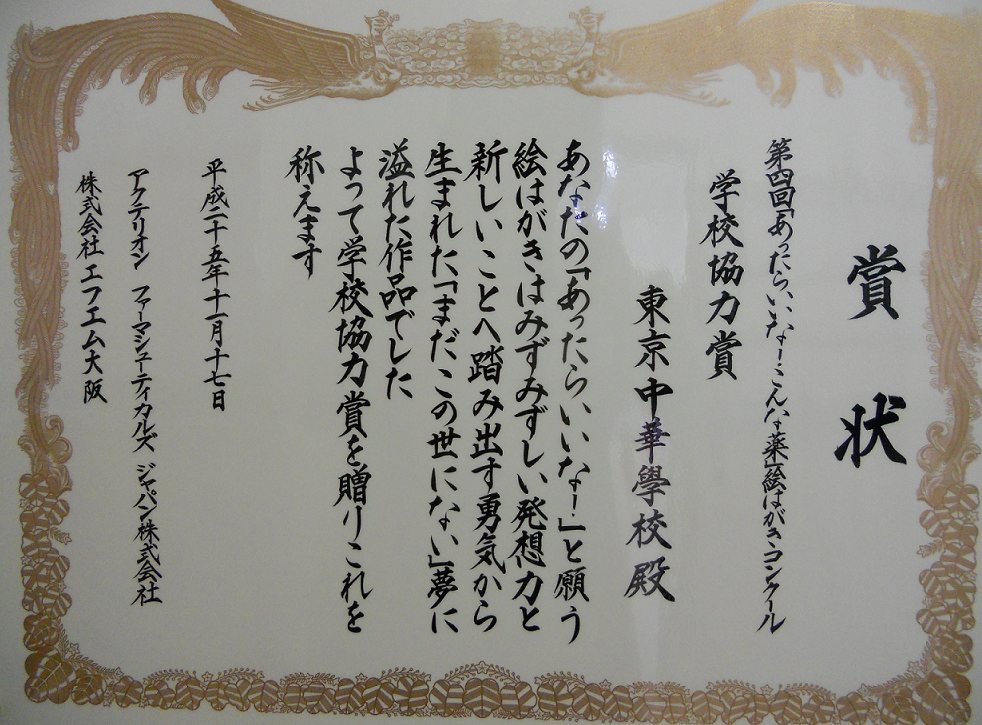 賞状
第四回「あったらいいな！こんな薬」絵はがきコンクール
学校協力賞
東京中華學校殿
あなたの「あったらいいな！」と願う
絵はがきはみずみずしい発想力と
新しいことへ踏み出す勇気から
生まれた「まだこの世にない」夢に
溢れた作品でした
よって学校協力賞を贈りこれを
称えます
平成二十五年十一月十七日
アクテリオン ファーマシューティカルズ ジャパン株式会社
株式会社 エフエム大阪